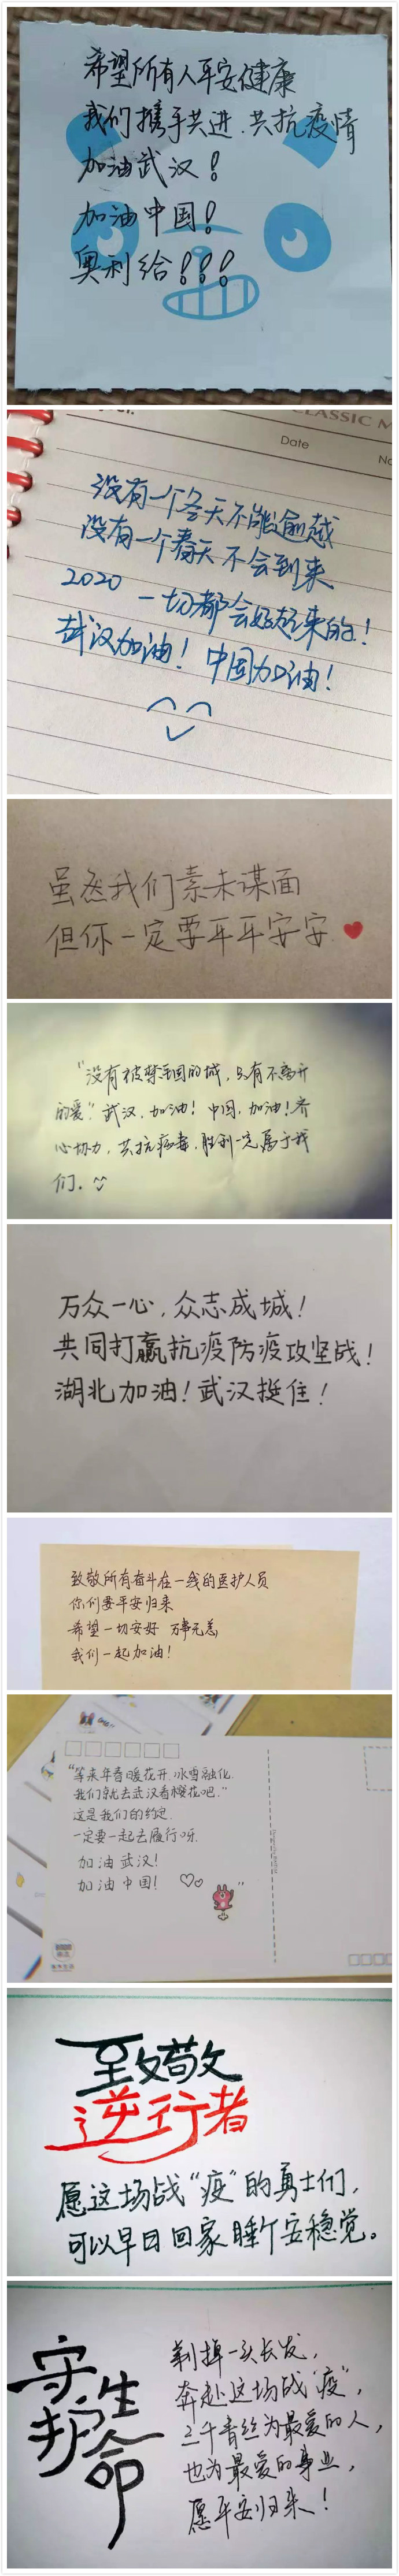 希望所有人平安健康
我们携手共进.共抗疫情
加油武汉!
加油中国!
奥利给!!!
CLASSIC M
Date
No
没有一个冬天不能逾越
没有一个春天不会到来
2020 一切都会好起来的!
武汉加油! 中国加油!
虽然我们素未谋面
但你一定要平平安安
“没有被禁围的城,只有不离开
的爱”武汉,加油!中国,加油!齐
心协力,共抗病毒,胜利一定属于我
们.
万众一心,众志成城!
共同打赢抗疫防疫攻坚战!
湖北加油!武汉挺住!
致敬所有奋斗在一线的医护人员
你们要平安归来
希望一切安好 万事无恙,
我们一起加油!
“等来年春暖花开.冰雪融化.
我们就去武汉看樱花吧.”
这是我们的约定.
一定要一起去履行呀.
加油武汉!
加油中国!
致敬
逆行者
愿这场战“疫”的勇士们,
可以早日回家睡个安稳觉。
守护生命
剃掉一头长发,
奔赴这场战“疫”,
三千青丝为最爱的人,
也为最爱的事业,
愿平安归来!